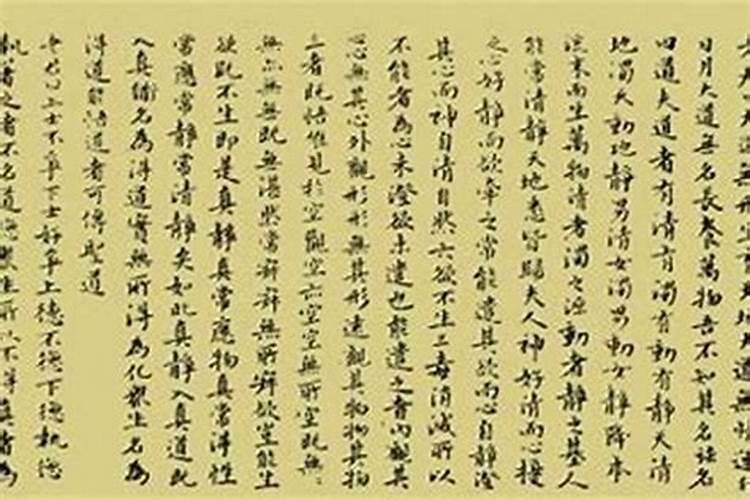 日月大道無名長養萬物吾不知其名強名
曰道夫道者有清有濁有動有靜天清
地濁天動地靜男清女濁男動女靜降本
流末而生萬物清者濁之源動者靜之基人
能常清靜天地悉皆歸夫人神好清而心擾
之心好靜而欲牽之常能遣其欲而心自靜澄
其心而神自清自然六欲不生三毒消滅所以
不能者為心未澄欲未遣也能遣之者內觀其
心無其心外觀形形無其形遠觀其物物其物
三者既悟惟見於空觀空亦空空無所空既無
無亦無無既無湛然常寂寂無所寂欲豈能生
欲既不生即是真靜真常應物真常得性
常應常靜常清靜矣如此真靜入真道既
入真道名為得道實無所得為化眾生名為
得道能悟道者可傳聖道
老君曰上士不爭下士好爭上德不德下德執德
執著之者不名道德眾生所以不得真道者為